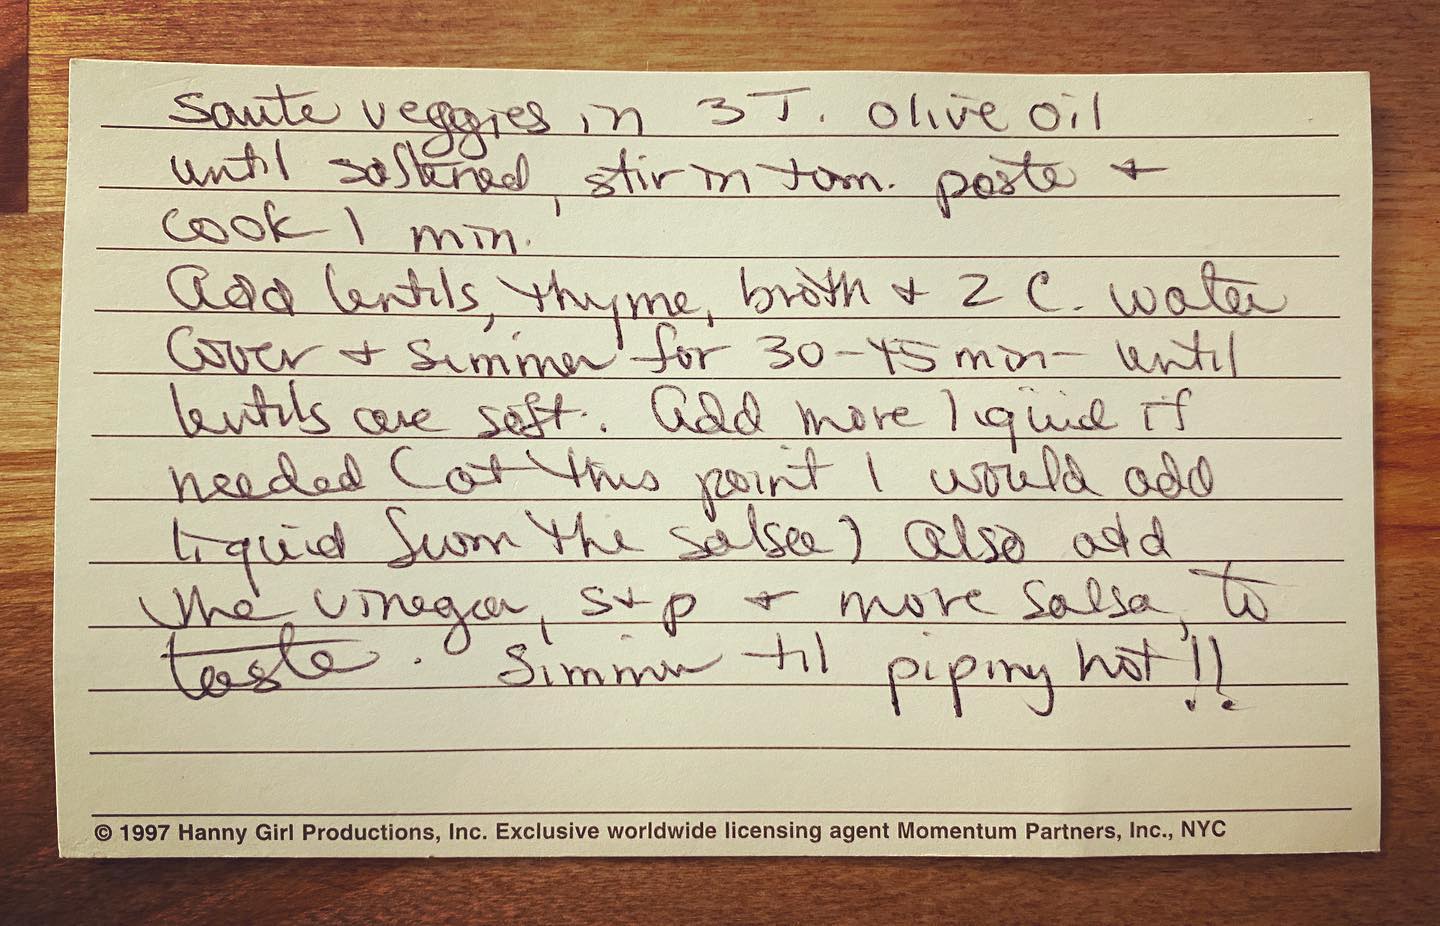 Saute veggies in 3 T. olive oil
until softened, stir in tom. paste +
cook 1 min.
Add lentils, thyme, broth + 2 C. water
Cover + simmer for 30-45 min- until
lentils are soft. Add more liquid if
needed (at this point I would add
liquid from the salsa) Also add
the vinegar, s+p + more salsa, to
taste. Simmer til piping hot!!
© 1997 Hanny Girl Productions, Inc. Exclusive worldwide licensing agent Momentum Partners, Inc., NYC